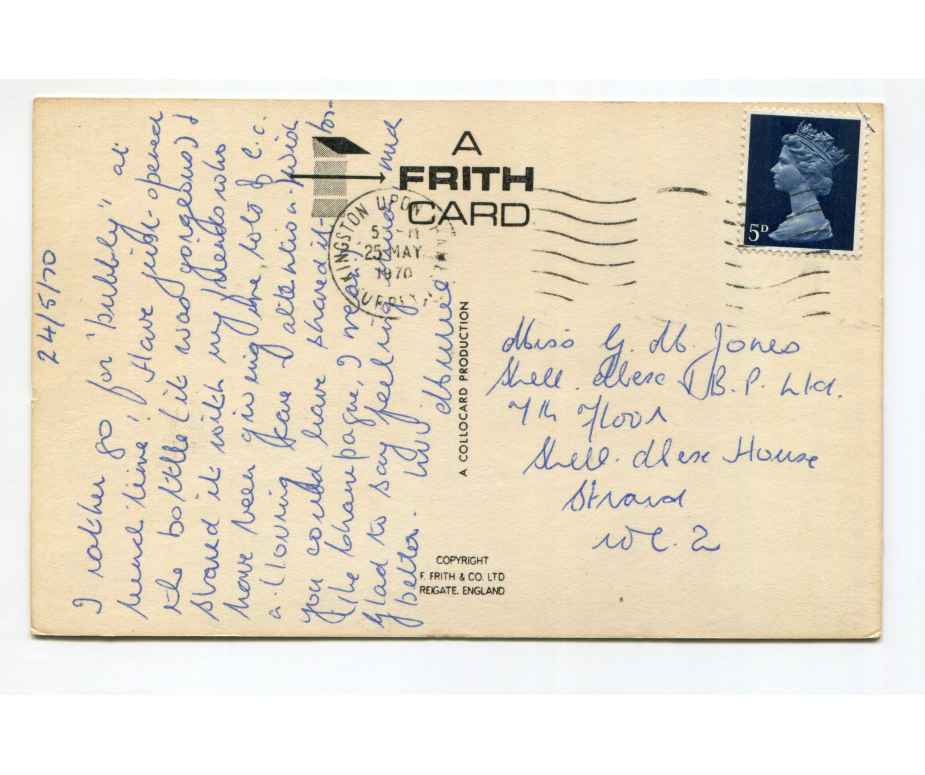 24/5/70
I rather go for "bubbly" at
lunch time! Have just opened
the bottle (it was gorgeous) &
shared it with my friends who
have been giving me, lots of t.l.c.
allowing
you could have shared it
(the champagne, I mean)
Glad to say feeling much
better. Luv Muriel
A
FRITH
CARD
KINGSTON UPON
25 MAY
1970
SURREY
5D
A COLLOCARD PRODUCTION
Miss G. M. Jones
Shell-Mex & B.P. Ltd.
7th Floor
Shell-Mex House
Strand
W C. 2
COPYRIGHT
F. FRITH & CO. LTD
REIGATE, ENGLAND